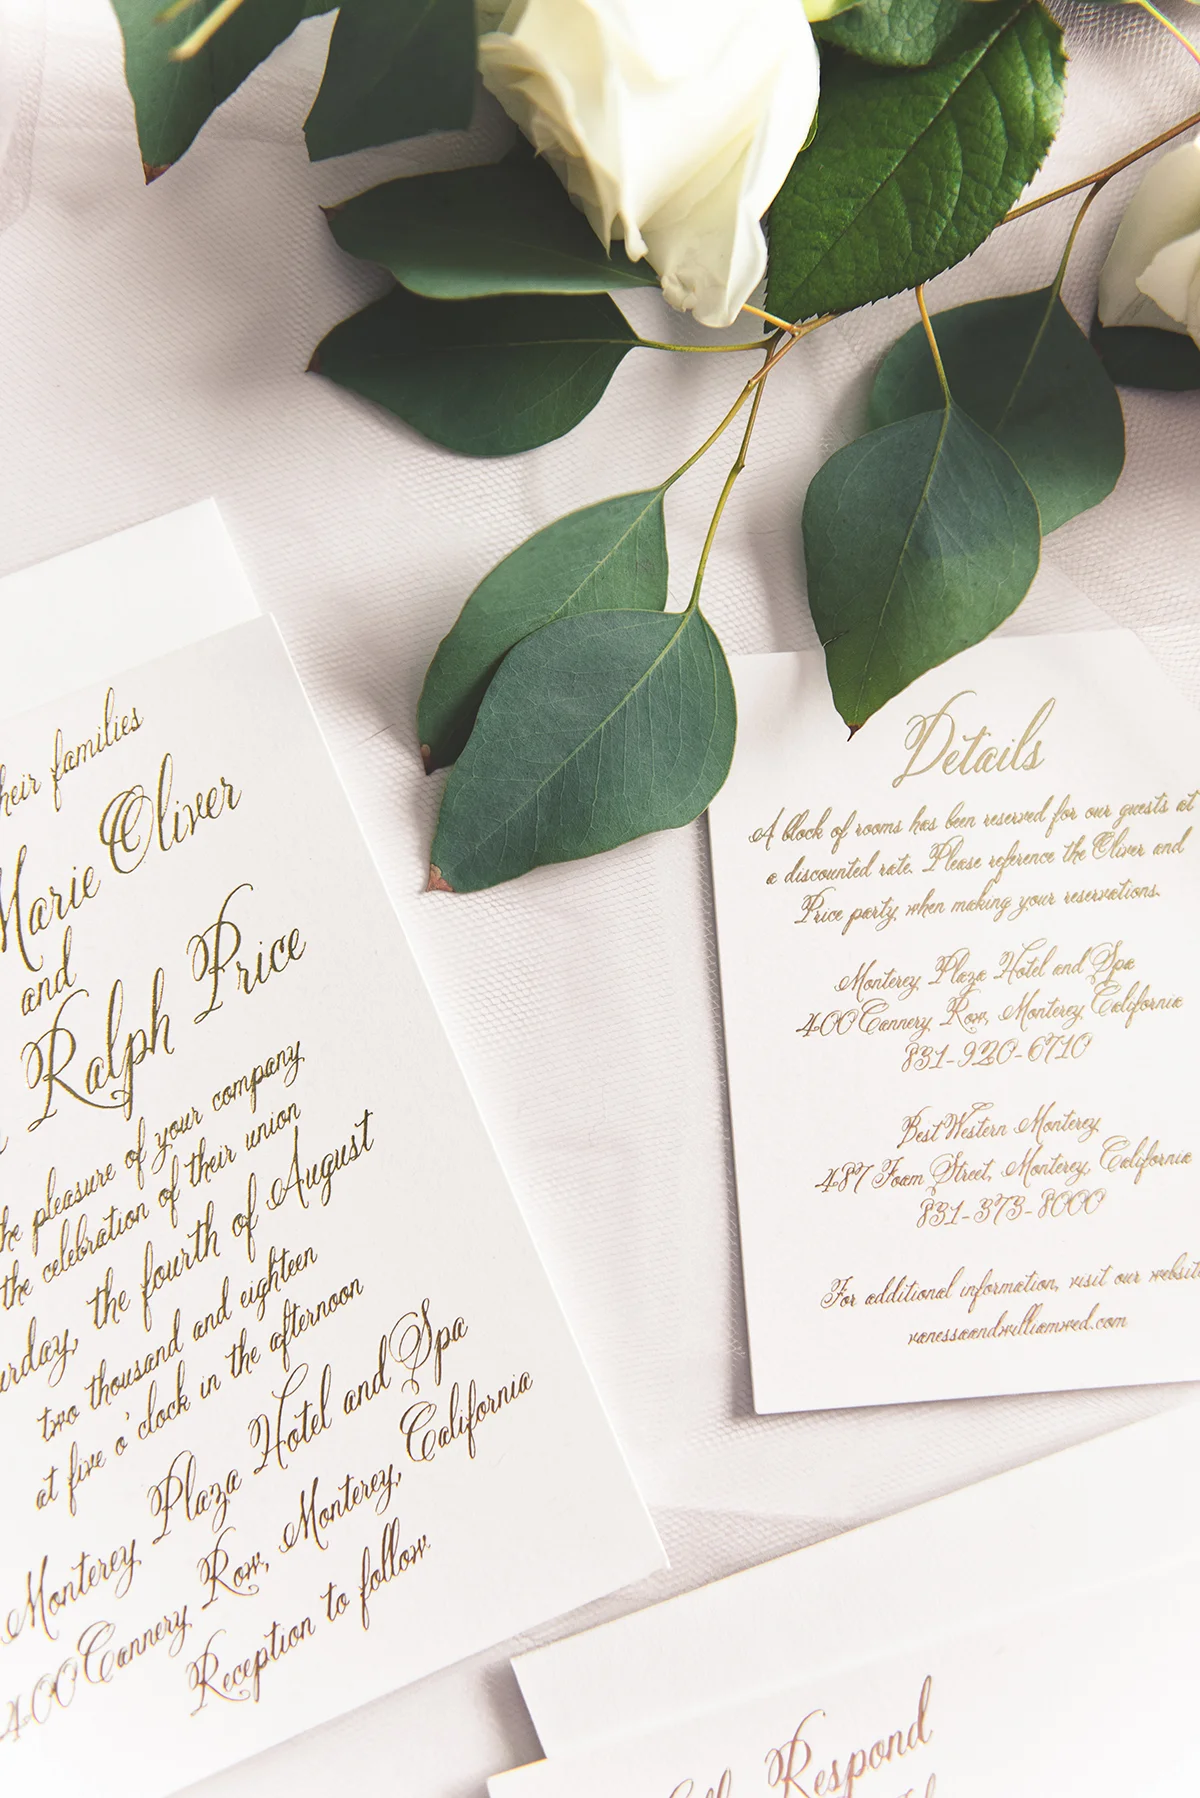 their families
Marie Oliver
and
Ralph Price
the pleasure of your company
the celebration of their union
the fourth of August
two thousand and eighteen
at five o'clock in the afternoon
Monterey Plaza Hotel and Spa
400 Cannery Row, Monterey, California
Reception to follow.
Details
A block of rooms has been reserved for our guests at
a discounted rate. Please reference the Oliver and
Price party when making your reservations.
Monterey Plaza Hotel and Spa
400 Cannery Row, Monterey, California
831-920-6710
Best Western Monterey
487 Foam Street, Monterey, California
831-373-8000
For additional information, visit our website
vanessaandwilliamwed.com
Respond